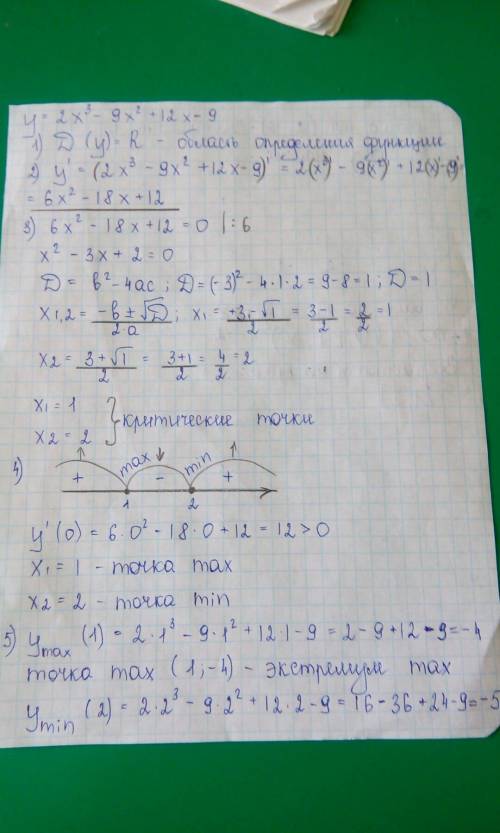 y = 2x³ - 9x² + 12x - 9
1) D (y) = R - область определения функции
2) y' = (2x³ - 9x² + 12x - 9)' = 2(x³)' - 9(x²)' + 12(x)' - (9)'
= 6x² - 18x + 12
3) 6x² - 18x + 12 = 0 | : 6
x² - 3x + 2 = 0
D = b² - 4ac ; D = (-3)² - 4·1·2 = 9 - 8 = 1 ; D = 1
x1,2 = (-b ± √D)/2a ; x1 = (+3 - √1)/2 = (3-1)/2 = 2/2 = 1
x2 = (3 + √1)/2 = (3+1)/2 = 4/2 = 2
x1 = 1
x2 = 2 } критические точки
4) ↑ max ↓ min ↑
+ - +
1 2
y' (0) = 6·0² - 18·0 + 12 = 12 > 0
x1 = 1 - точка max
x2 = 2 - точка min
5) ymax (1) = 2·1³ - 9·1² + 12·1 - 9 = 2 - 9 + 12 - 9 = -4
точка max (1; -4) - экстремум max
ymin (2) = 2·2³ - 9·2² + 12·2 - 9 = 16 - 36 + 24 - 9 = -5